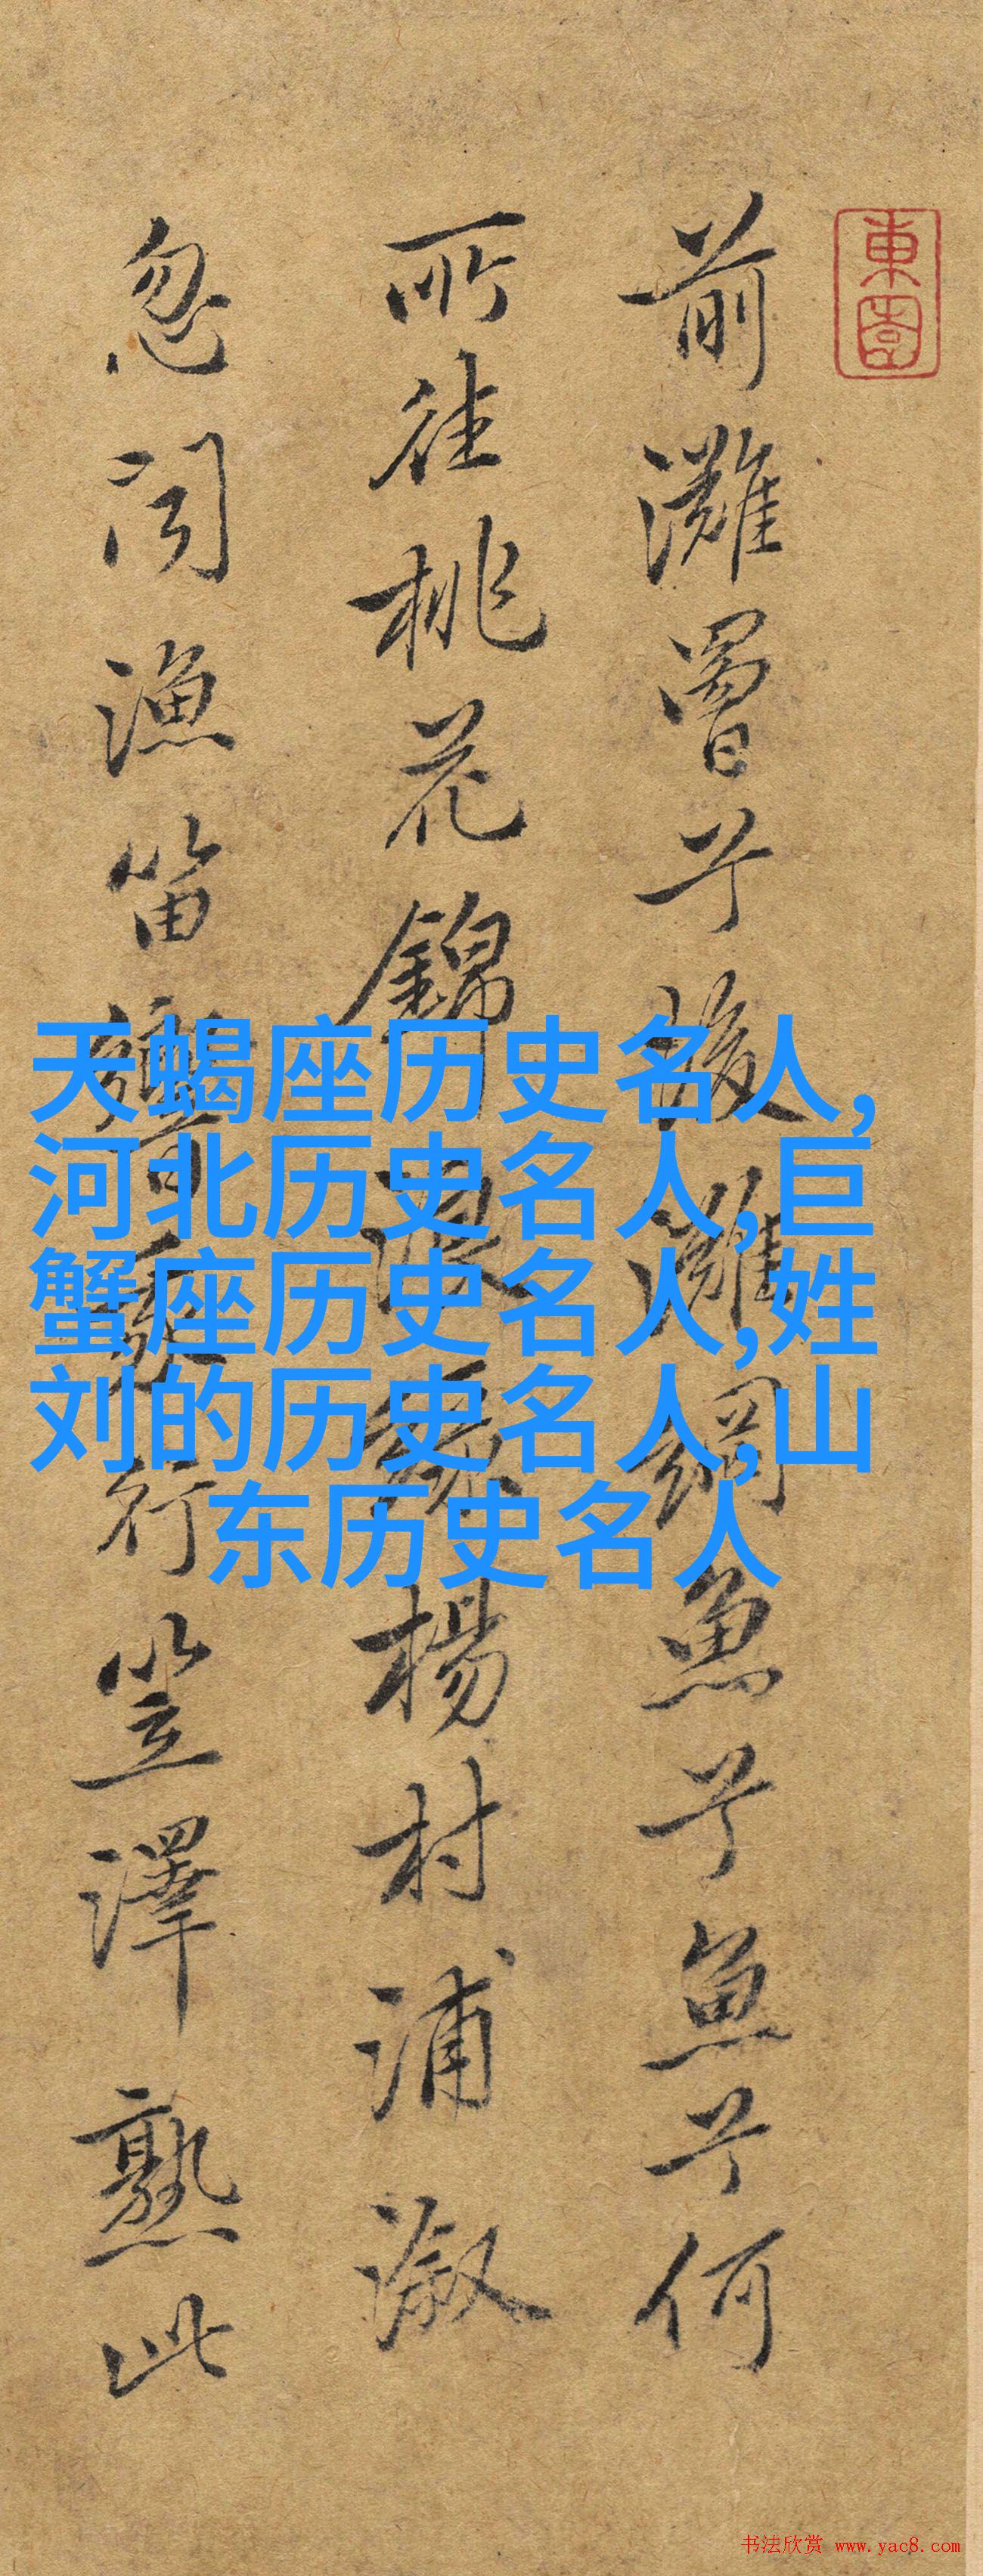 東園
前灘罾兮後灘網魚兮魚兮何
所往桃花錦浪綠楊村浦溆
忽聞漁笛響我行笠澤熟此
天蝎座历史名人,
河北历史名人,巨
蟹座历史名人,姓
刘的历史名人,山
东历史名人
书法欣赏 www.yac8.com